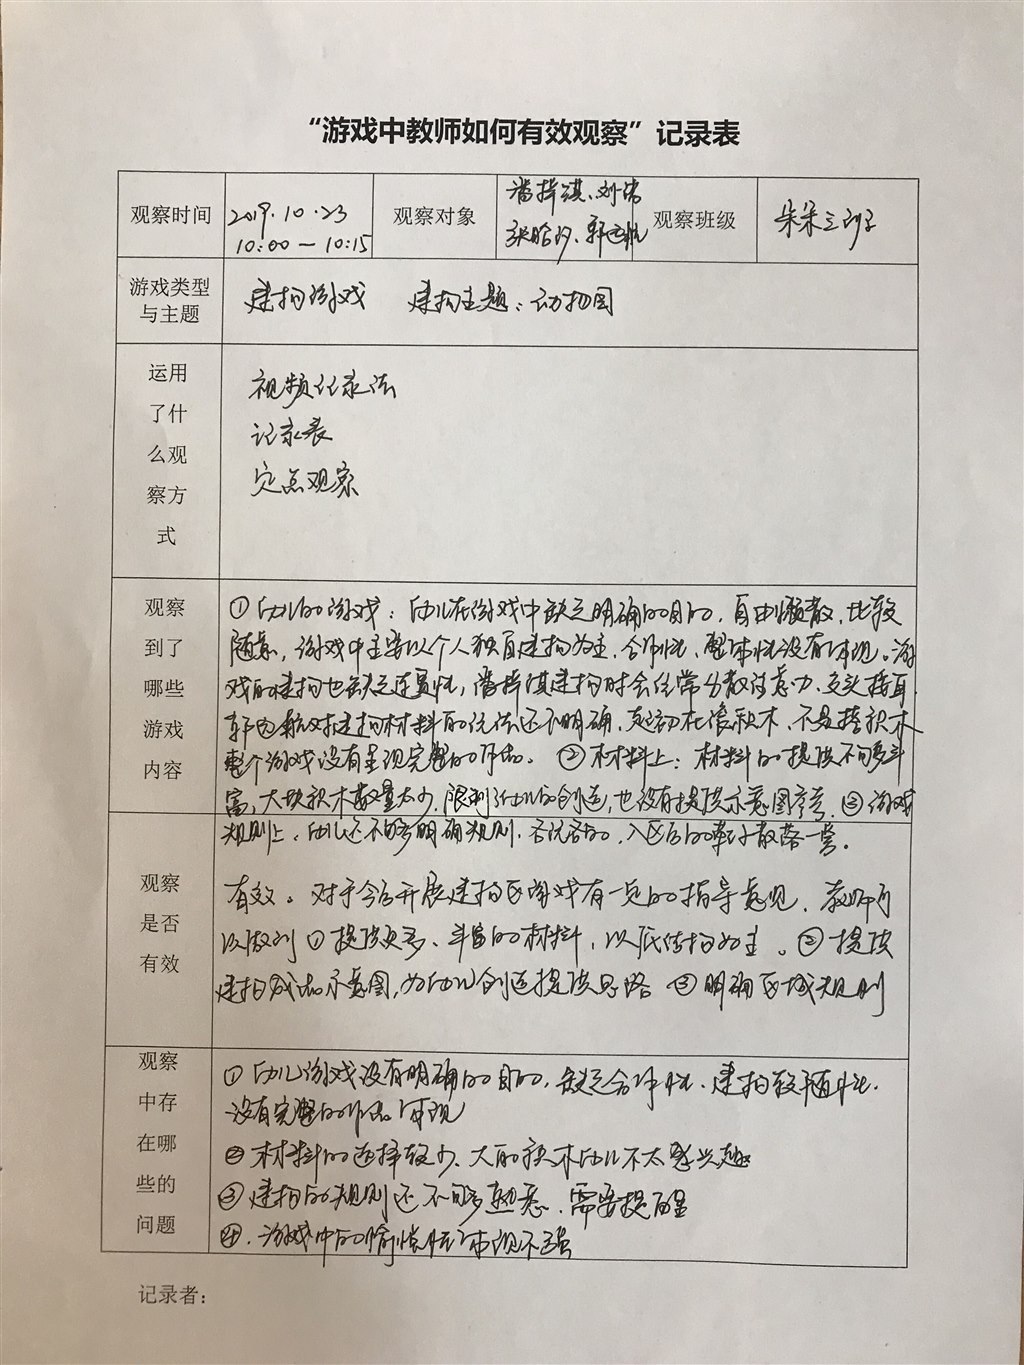 “游戏中教师如何有效观察”记录表
观察时间
2019.10.23
10:00—10:15
观察对象
观察班级
朵朵三班
游戏类型
与主题
建构游戏 建构主题：动物园
运用
了什
么观
察方
式
视频记录法
记录表
定点观察
观察
到了
哪些
游戏
内容
①幼儿的游戏：幼儿在游戏中缺乏明确的目的，自由懒散，比较
随意，游戏中主要以个人独自建构为主，合作性、整体性没有体现。游
戏的建构也缺乏连贯性，建构时会经常分散注意力、交头接耳
对建构材料的玩法还不明确，运动在滚积木，不是搭积木
整个游戏没有呈现完整的作品。②材料上：材料的提供不够丰
富，大块积木数量太少，限制幼儿的创造，也没有提供示意图参考。③游戏
规则上，幼儿还不够明确规则，入区后的鞋子散落一旁。
观察
是否
有效
有效。对于今后开展建构区游戏有一定的指导意见，教师可
以做到①提供更多、丰富的材料，以低结构为主。②提供
建构成品示意图，为幼儿创造提供思路③明确区域规则
观察
中存
在哪
些的
问题
①幼儿游戏没有明确的目的，缺乏合作性、建构较随性、
没有完整的作品体现
②材料的选择较少、大的积木幼儿不太感兴趣
③建构的规则还不够熟悉，需要提醒
④.游戏中的愉悦性体现不强
记录者：